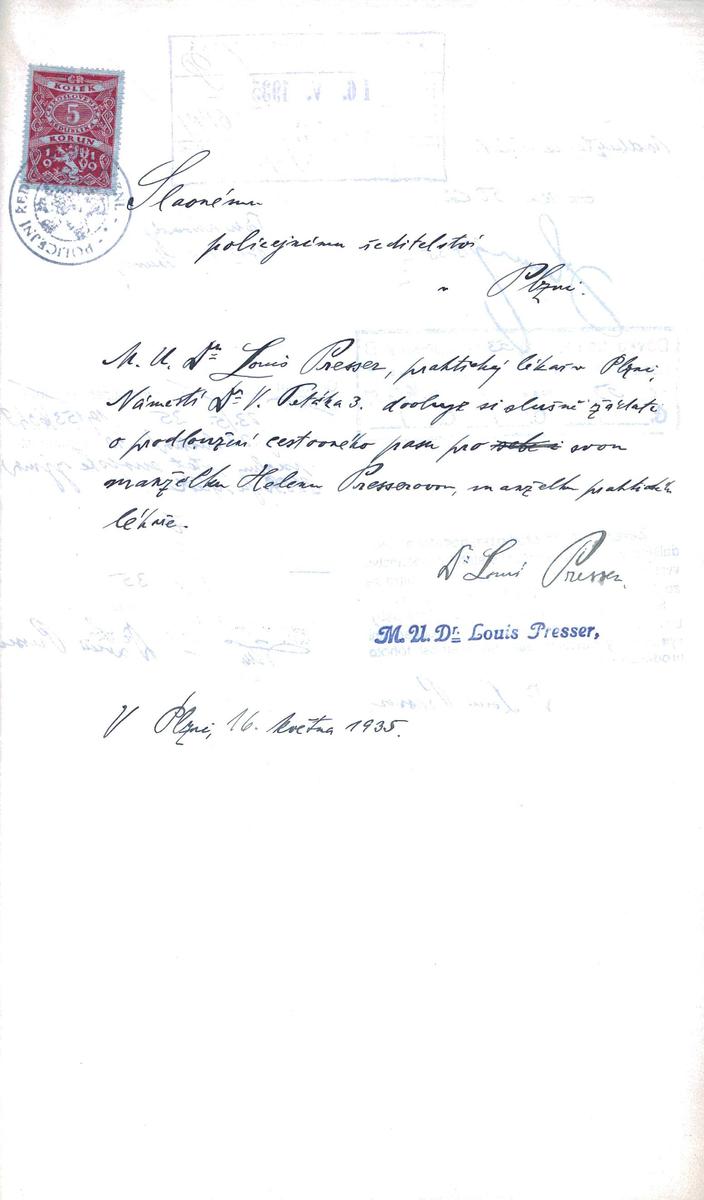 ČR
KOLEK
ČESKOSLOVENSKÁ
5
REPUBLIKA
KORUN
1919
POLICEJNÍ
16. V. 1935
Slavnému
policejnímu ředitelství
v Plzni.
M. U. Dr Louis Presser, praktický lékař v Plzni,
Náměstí Dr V. Petáka 3. dovoluje si slušně žádati
o prodloužení cestovného pasu pro sebe i svou
manželku Helenu Presserovou, manželku praktick.
lékaře.
Dr Louis Presser.
M. U. Dr Louis Presser,
V Plzni, 16. května 1935.